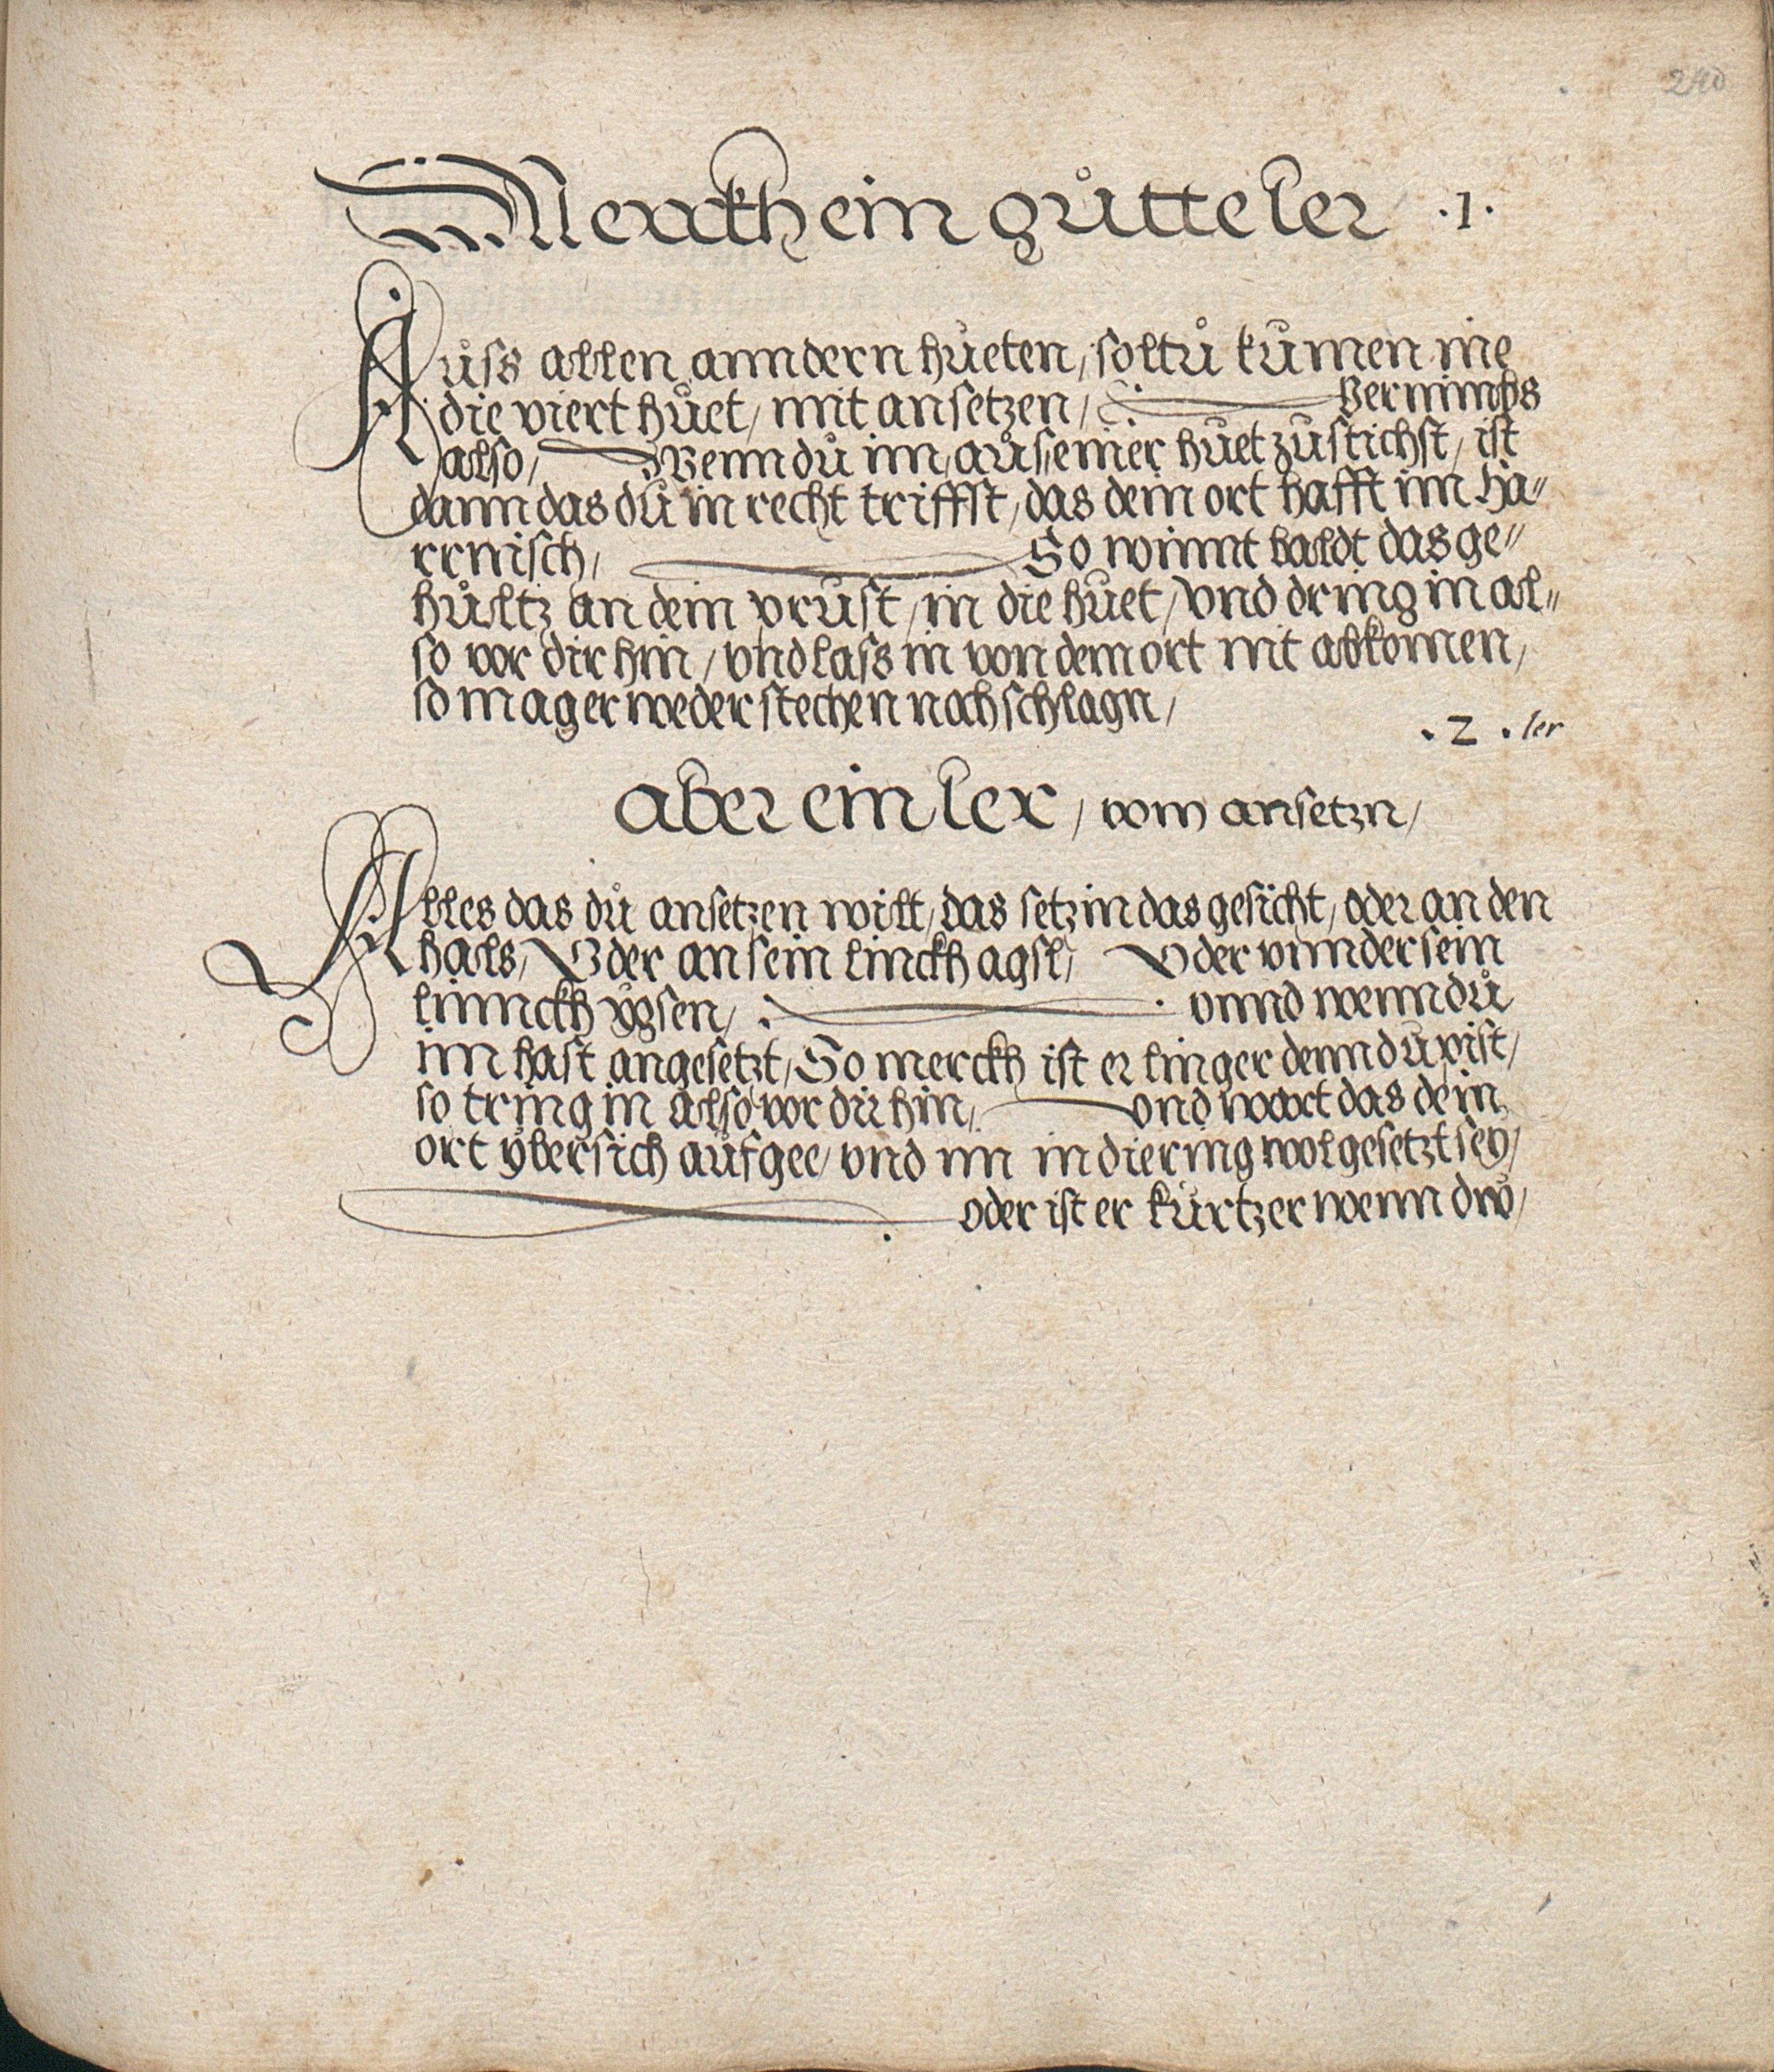 240
Merckh ein gůtte ler .1.
Aůss allen anndern hůeten, soltů kůmen inn
die viert hůet, mit ansetzen, Vernimbs
also, Wenn dů im, aůs einer hůet zůstichst, ist
dann das dů in recht triffst, das dein ort hafft im ha„
rrnisch, So winnt baldt das ge„
hůltz an dein prust, in die hůet, vnd dring in al„
so vor dir hin, vnd lass in von dem ort nit abkomen,
so mag er weder stechen noch schlagn,
. 2 . ler
aber ein ler, vom ansetzn,
Alles das dů ansetzen wilt, das setz in das gesicht, oder an den
hals, Oder an sein linckh agsl, Oder vnnder sein
linnckh ygsen, vnnd wenn dů
im hast angesetzt, So merckh ist er linger denn dů pist,
so tring in also vor dir hin, vnd wart das dein
ort ybersich aůfgee, vnd im in die ring wol gesetzt sey,
oder ist er kůrtzer wenn dw,